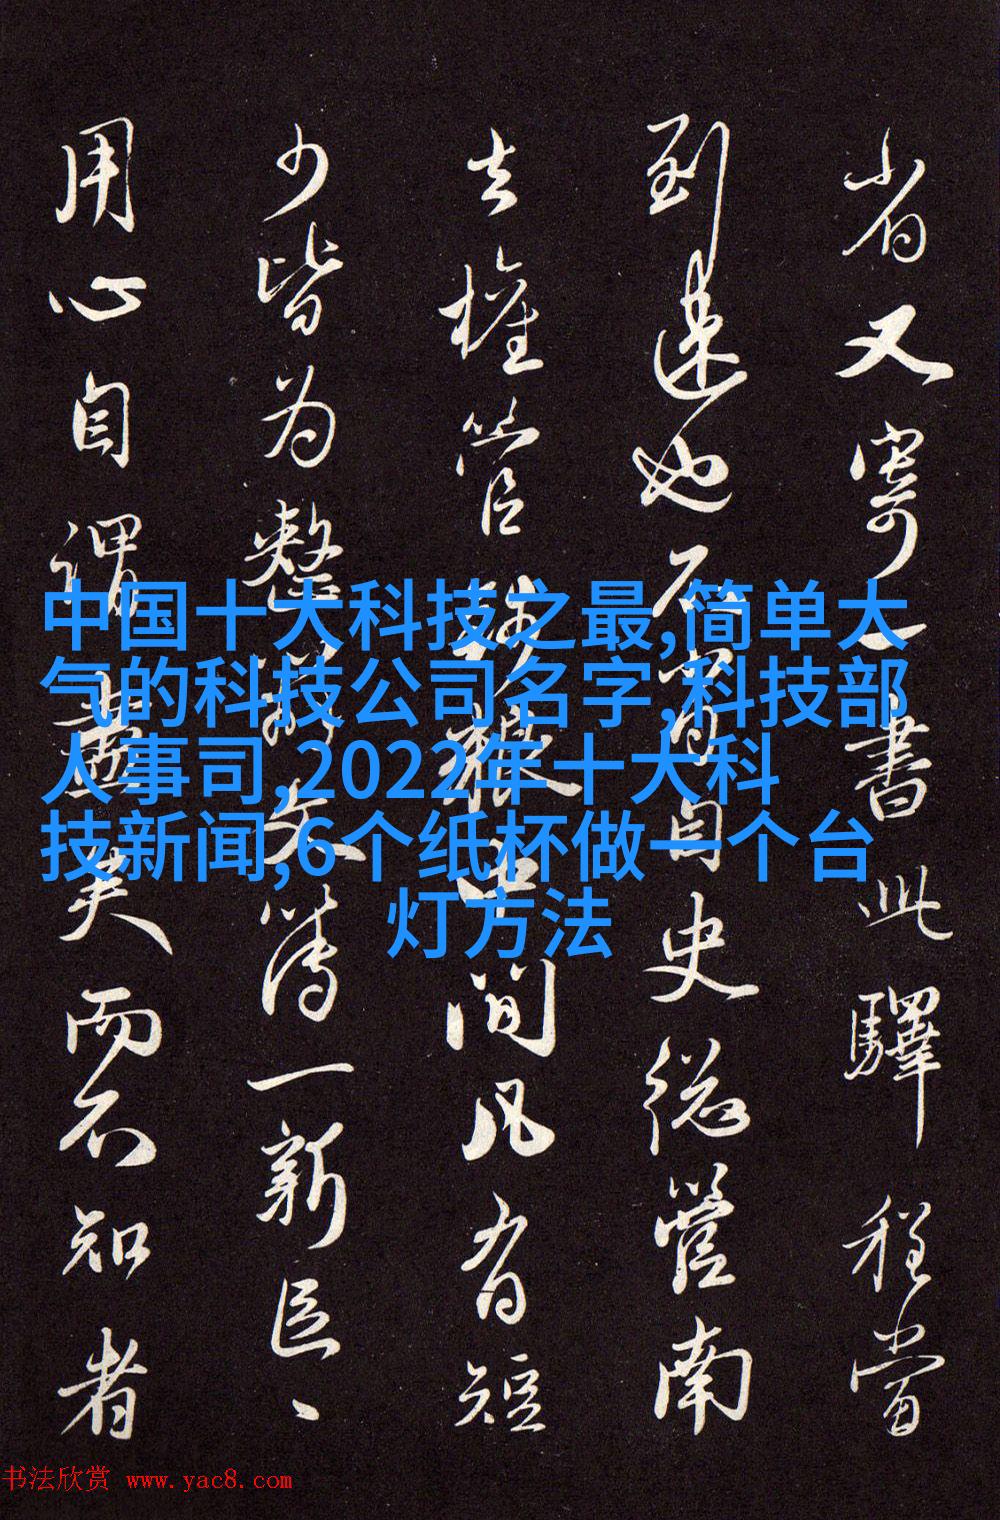 省又寄一書此驛程當
到遠也不肖自史總管南
去權管軍糧中間凡有短
少皆为整辦文簿一新臣、
用心自謂盡矣而不知者
中国十大科技之最,简单大
气的科技公司名字,科技部
人事司,2022年十大科
技新闻,6个纸杯做一个台
灯方法
书法欣赏 www.yac8.com